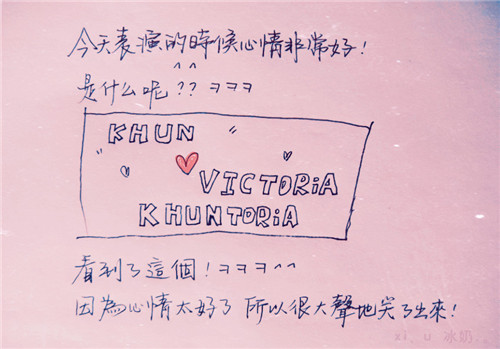 今天表演的時候心情非常好!
^^
是什么呢?? ㅋㅋㅋ
KHUN
VICTORIA
KHUNTORIA
看到了這個! ㅋㅋㅋ^^
因為心情太好了 所以很大聲地笑了出來!
xi、u 冰奶